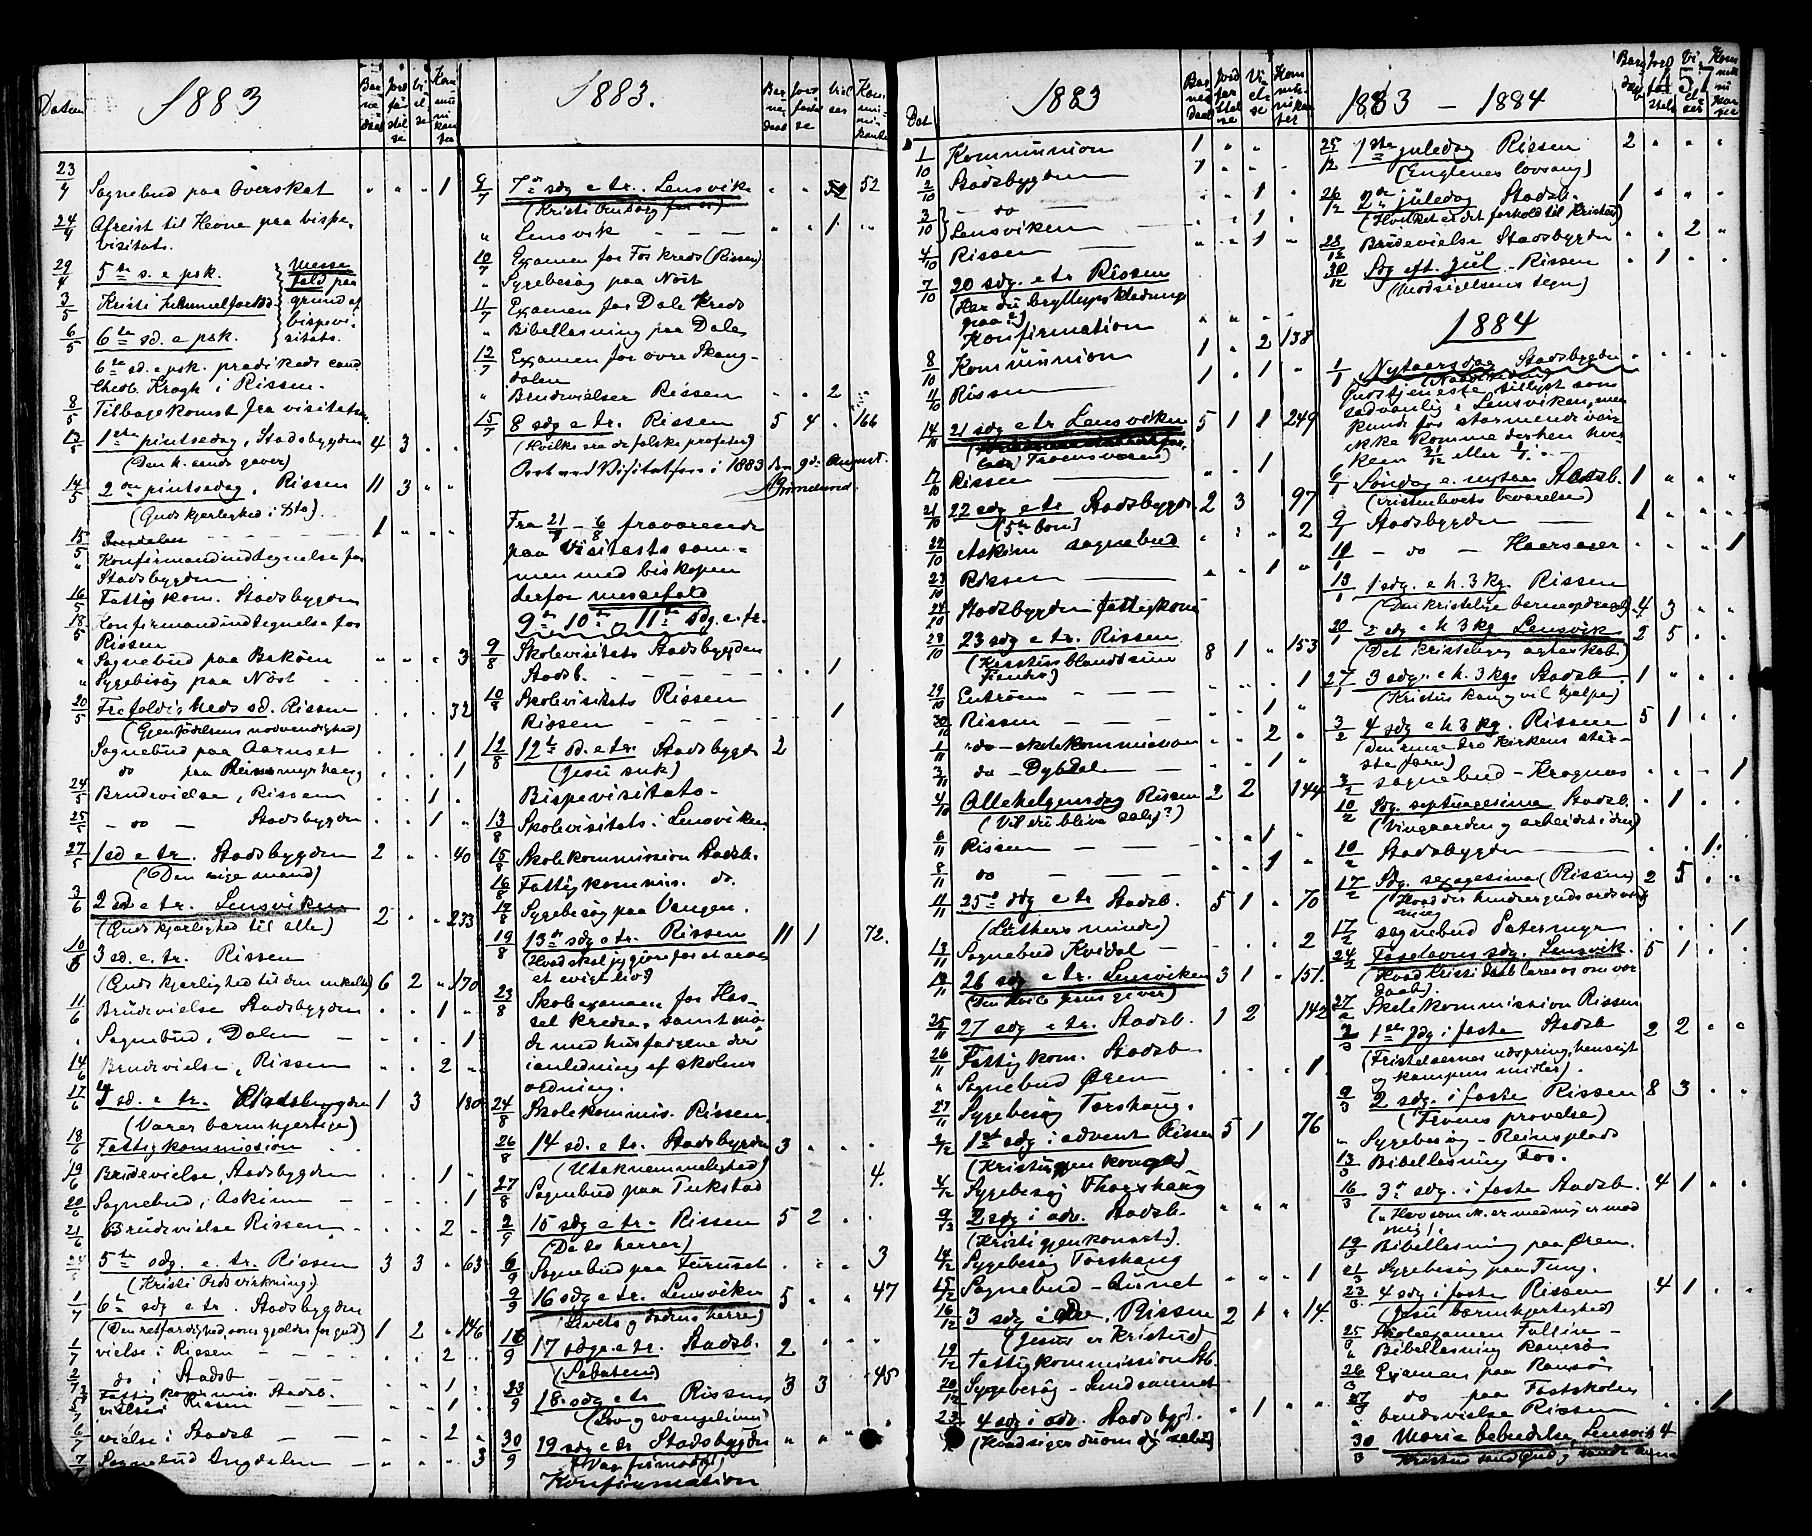 1883
Datum
Barnedaab Jordfæstelse Vielse Kommunikanter
23/4 Sognebud paa Överskat " " " 1
24/4 Afreist til Hevne paa bispe-
visitats.
29/4 5te s. e psk. Messe-
fald paa
3/5 Kristi himmelfartsd. grund af
bispevi-
6/5 6te sd. e psk. sitats.
6te sd. e psk. prædikede cand.
theol. Krogh i Rissen.
8/5 Tilbagekomst fra visitatsen
13/5 1ste pintsedag, Stadsbygden 4 3 . .
(Den h. aands gaver)
14/5 2den pintsedag, Rissen 11 3 " "
(Guds kjærlighed i Xto)
15/5 - - - - 1 " " "
" Konfirmandindtegnelse for
Stadsbygden
16/5 Fattigkom. Stadsbygden
18/5 Konfirmandindtegnelse for
Rissen
" Sognebud paa " " " 3
" Sygebesög paa Nöst
20/5 Trefoldigheds sd. Rissen . . . 32
(Gjenfödelsens nödvendighed)
Sognebud paa Aarnset . . . 1
do paa Reinsmyrhaug . . . 1
24/5 Brudevielse, Rissen . . 1 .
25/5 - do - Stadsbygden . . 1 "
27/5 1 sd e tr. Stadsbygden 2 " . 40
(Den rige mand)
3/6 2 sd e tr. Lensviken 2 " " 233
(Guds kjærlighed til alle)
10/6 3 sd. e. tr. Rissen
(Guds kjærlighed til den enkelte) 6 2 " 170
11/6 Brudevielse Stadsbygden . . 1 "
" Sognebud, Dalen - . . . 1
14/6 Brudevielse, Rissen " . 2 "
17/6 4 sd. e. tr. Stadsbygden 1 3 180
(Værer barmhjertige)
18/6 Fattigkommission
19/6 Brudevielse, Stadsbygden . . 1 .
20/6 Sognebud, Askim - . . . 1
21/6 Brudevielse Rissen . . . 2 "
5te sdg. e. tr. Rissen 3 3 " 63
(Kristi Ords virkning)
1/7 6te sdg e tr. Stadsbygden
(Den retfærdighed, som gjælder for gud) 1 2 " 146
1/7 vielse i Rissen - - - . . 2 .
2/7 do i Stadsb - - - . " 1 .
Fattigkommis. Stadsb.
5/7 vielse i Rissen - - - . " 1 .
6/7 vielse i Stadsb - - " . 2 "
7/7 Sognebud Ingdalen - " . . 3
1883.
Barnedaab Jordfæstelse Vielser Kommunikanter
9/7 7de sdg e tr. Lensvik " " 52
(Kristi Omsorg for os)
" Lensvik - - - " " 1 "
10/7 Examen for Fos kreds (Rissen)
" Sygebesög paa Nöst
11/7 Examen for Dale kreds
" Bibellæsning paa Dale
12/7 Examen for övre Skaug-
dalen
" Brudevielser Rissen . . 2 "
15/7 8 sdg e tr. Rissen 5 4 . 166
(Hvilke ere de falske profeter)
Post ved Visitatsen i 1883 den 9de August.
Fra 21/7 - 6/8 fraværende
paa Visitats sam-
men med biskopen
derfor messefald
9de 10de og 11te sdg. e. tr.
9/8 Skolevisitats Stadsbygden
Stadsb. - - - - " " 1
10/8 Skolevisitats Rissen
Rissen - - - - . . 1
12/8 12te sd. e tr. Stadsbygd. 2
(Jesu suk)
Bispevisitats.
13/8 Skolevisitats i Lensviken
15/8 Skolekommission Stadsb.
16/8 Fattigkommis. do.
17/8 Sygebesög paa Vangen.
19/8 13de sdg e tr. Rissen 11 1 72.
(Hvad skal jeg gjøre for at arve
et evigt liv?)
23/8 Skoleexamen for Has-
sel kreds, samt mö-
de med husfædrene der
i anledning af skolens
ordning.
24/8 Skolekommis. Rissen.
26/8 14 sd. e tr. Stadsbygden 3 . " .
(Utaknemmelighed)
27/8 Sognebud paa Tukstad 4.
2/9 15 sdg e tr. Rissen 5 2 . .
(De to herrer)
6/9 Sognebud paa Feruset . . . 3
9/9 16 sdg e tr. Lensviken 5 " " 47
(Livets og dödens herre)
16/9 17 sdg. e tr. Stadsb. 2 . . "
(Sabaten)
23/9 18. sdg e tr Rissen 3 3 . 45
(Lov og evangelium)
30/9 19 sdg e tr Stadsbygden " " " "
Konfirmation
1883
Dat.
Barnedaab Jordfæstelse Vielse Kommunikanter
1/10 Kommunion 1 " "
2/10 Stadsbygden 1 . .
3/10 - do - " . 1 .
3/10 Lensviken . . 1 .
4/10 Rissen - . " 1 "
7/10 20 sdg. e tr Rissen
(Har du bryllupsklædning
paa?)
Konfirmation " " "
8/10 Kommunion 1 . 2 138
Rissen 1 . 1 "
14/10 21 sdg e tr Lensviken 5 1 1 249
Troens væsen)
17/10 Rissen - " . 1
21/10 22 sdg e tr Stadsbygd. 2 3 97
(5te bön)
22/10 Askim sognebud " " " 2
23/10 Rissen - " . 1 "
24/10 Stadsbygden fattigkom
28/10 23 sdg e tr. Rissen 8 1 " 153
(Kristus blandt sine
fiender)
29/10 Entröen - - . . . 1
30/10 Rissen - - - . . 1 "
1/11 do - skolekommission . . 2 .
3/11 do - Dybdal - . . 1 "
4/11 Allehelgensdag Rissen 2 2 144
(Vil du blive salig?)
6/11 Rissen - - - . . 1 .
8/11 do - - - . . 1 .
11/11 25de sdg e tr Stadsb. 5 1 . 70
(Luthers minde)
13/11 Sognebud Kvidal - . . . 2
18/11 26 sdg e tr. Lensviken 3 1 . 151.
(Den hvile Jesus giver)
25/11 27 sdg e tr. Stadsb. 1 2 142
26/11 Fattigkom. Stadsb.
" Sognebud Ören . . . 1
27/11 Sygebesög Torshaug.
2/12 1ste sdg i advent Rissen 5 1 " 76
(Kristus som konge)
4/12 Sygebesög Thorshaug
9/12 2 sdg i adv. Stadsb. " " " "
(Kristi gjenkomst)
14/12 Sygebesög Torshaug
15/12 Sognebud - Aunet " " " 1
16/12 3 sdg i adv. Rissen 2 1 " 14.
(Jesus er Kristus)
19/12 Fattigkommission Stb.
20/12 Sygebesög - Sundsaunet
23/12 4 sdg i adv. Stadsbygd. . 1 . .
(Hvad siger du om dig selv?)
457
1883 - 1884
Barnedaab Jordfæstelse Vielser Kommunikanter
25/12 1ste juledag Rissen 2 " . "
(Englenes lovsang)
26/12 2den juledag Stadsb. 1 " " "
(Hvilket er dit forhold til Kristus)
28/12 Brudevielse Stadsbygden . . 2 "
30/12 Sdg eft. Jul - Rissen . 1 . .
(Modsigelsens tegn)
1884
1/1 Nytaarsdag Stadsbygden " . . .
Gudstjeneste tillyst som
sedvanlig i Lensviken, men
kunde for stormende veir
ikke komme derhen hver-
ken 31/12 eller 1/1.
6/1 Söndag e. nytaar Stadsb. 1 " " "
(Kristenlivets bevarelse)
9/1 Stadsbygden - 1 . . "
10/1 - do - . . . 1
13/1 1 sdg. e h. 3 kg. Rissen
(Den kristelige barneopdragelse) 4 3 " "
20/1 2 sdg e h 3 kg Lensvik 2 5 " "
(Det kristelige ægteskab)
27/1 3 sdg. e h. 3 kg. Stadsb. 1 . . "
(Kristus kan og vil hjælpe)
3/2 4 sdg e h 3 kg. Rissen 5 1 . .
(Den svage tro kirkens stör-
ste fare)
3/2 sognebud - Kragnæs . . . 1
10/2 Sdg. septuagesima Stadsb. . 1 . .
(Vingaarden og arbeidet i den)
10/2 Stadsbygden - . . 1 .
17/2 Sdg. sexagesima (Rissen) 2 5 . .
(Hvad der hindrer guds ords virk-
ning
17/2 sognebud Sætermyr . . . 1
24/2 Fastelavns sdg. Lensvik. 5 1 . .
(Hvad Kristi daab lærer os om vor
daab).
27/2 Skolekommission Rissen
2/3 1ste sdg i faste Stadsb 2 2 . .
(Fristelsernes udspring, hensigt
og kampens midler).
9/3 2 sdg. i faste Rissen 8 3 . .
(Troens prövelse)
" Sygebesög - Reinsplads
13/3 Bibellæsning Fos.
16/3 3de sdg. i faste Stadsb. 4 1 " "
("Hvo som ik. er med mig er mod
mig").
19/3 Bibellæsning paa Ören.
21/3 Sygebesög paa Tung.
23/3 4 sdg i faste Rissen 4 1 . .
(Jesu barmhjertighed)
25/3 Skoleexamen Fallin -
" Bibellæsning Ramsö
26/3 Examen paa Ramsö
27/3 do paa Fastskolen
" brudevielse Rissen . . 1
30/3 Mariæ bebudelse, Lensvik 4
Kristus sand Gud og sandt menneske